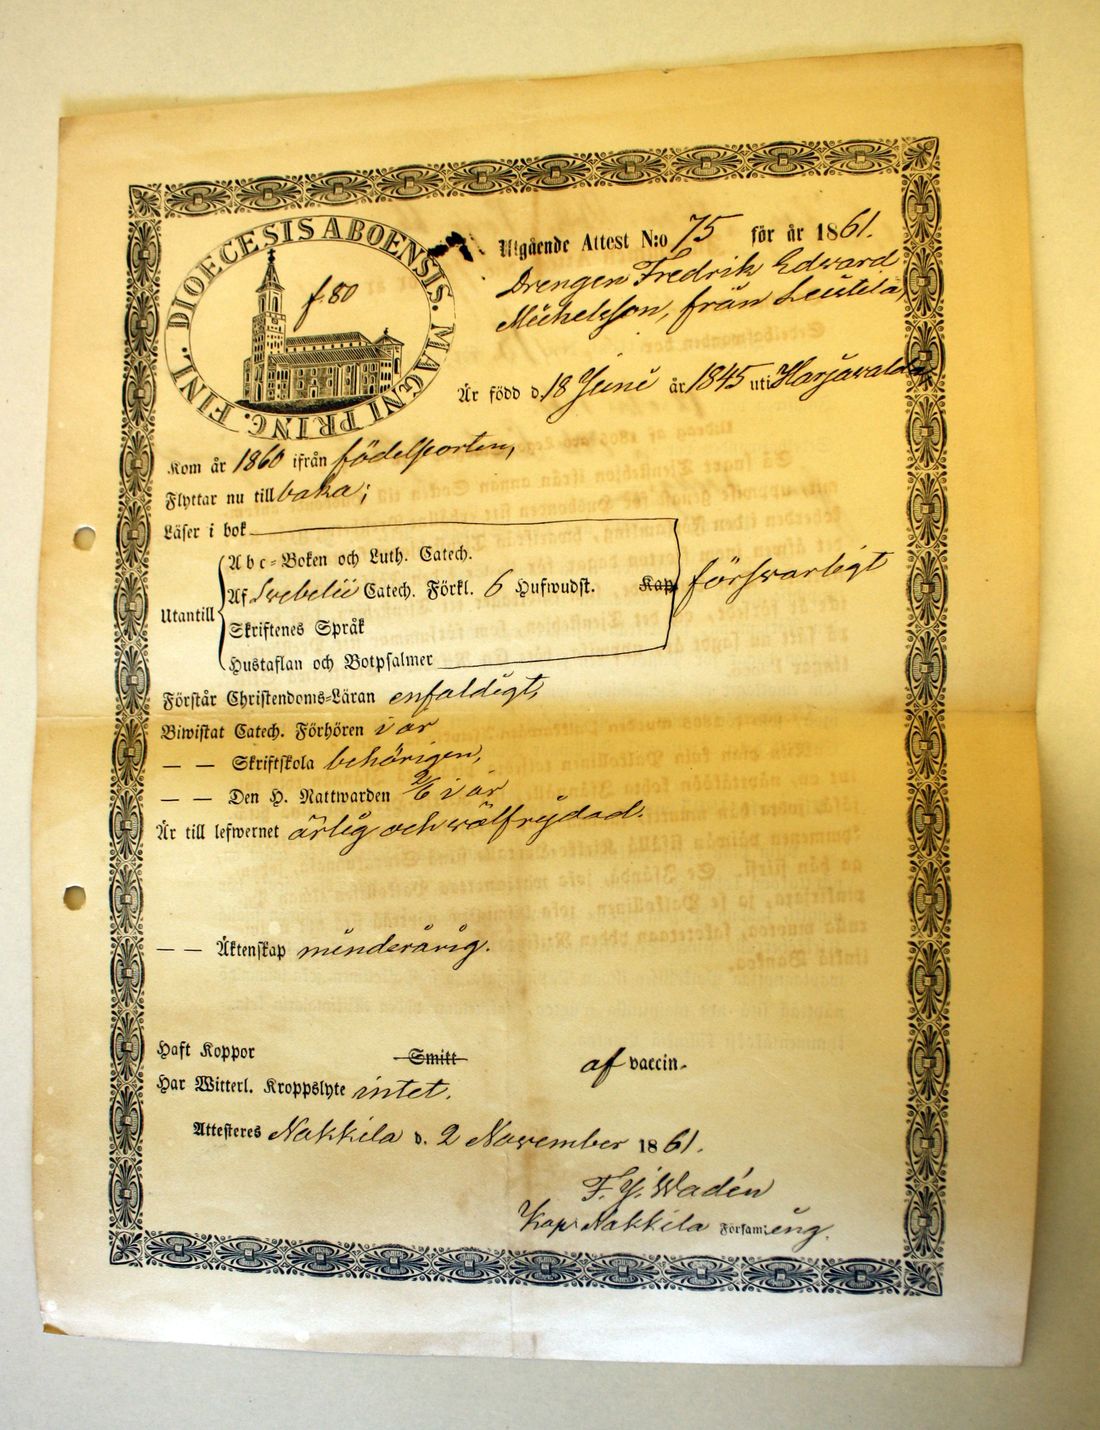 DIOECESIS ABOENSIS. MAGNI PRINC. FINL.
f. 80
Utgående Attest N:o 75 för år 1861.
Drengen Fredrik Edvard
Michelsson, från Leistila,
Är född d. 18 Juni år 1845 uti Harjavalda
Kom år 1860 ifrån födelseorten,
Flyttar nu till baka;
Läser i bok
Abc-Boken och Luth. Catech.
Af Svebelii Catech. Förkl. 6 Hufwudst. Kap försvarligt
Utantill
Skriftenes Språk
Hustaflan och Botpsalmer
Förstår Christendoms-Läran enfaldigt,
Biwistat Catech. Förhören i år
— — Skriftskola behörigen,
— — Den H. Nattwarden 2/6 i år
Är till lefwernet ärlig och välfrejdad.
— — Äktenskap minderårig.
Haft Koppor Smitt af vaccin.
Har Witterl. Kroppslyte intet.
Attesteres Nakkila d. 2 November 1861.
F. J. Wadén
Kap. Nakkila Försam:eng.